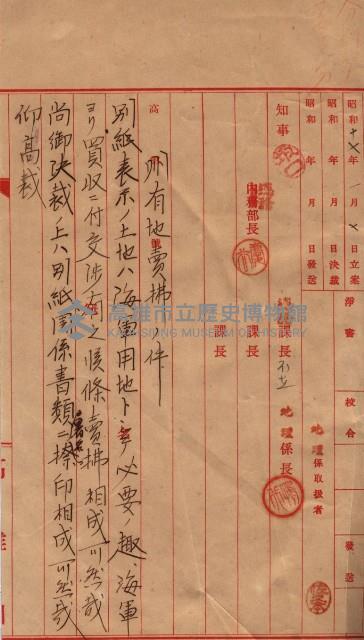 昭和十×年 月×日立案
昭和 年 月 日決裁
昭和 年 月 日發送
淨書
校合
發送
知事
内務部長
課長
課長
課長
地理係長
地理係取扱者
高
州有地賣拂ノ件
別紙表示ノ土地ハ海軍用地トシテ必要ノ趣、海軍
ヨリ買收ニ付交渉有之候條賣拂相成可然哉
尚御決裁ノ上ハ別紙関係書類ニ捺印相成可然哉
仰高裁
高雄市立歷史博物館
KAOHSIUNG MUSEUM OF HISTORY